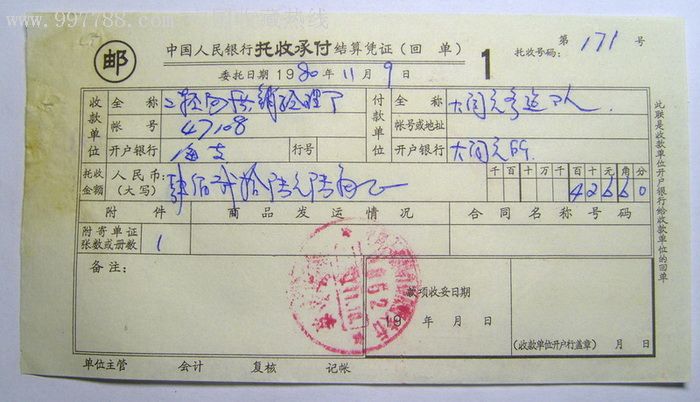 www.997788.com
邮
中国人民银行托收承付结算凭证（回 单） 1
第 171 号
托收号码：
委托日期 1980年11月9日
收款单位 全 称
付款单位 全 称
帐 号 47108 帐号或地址
开户银行 行号 开户银行
托收金额 人民币：（大写） 肆佰贰拾陆元陆角 千百十万千百十元角分
42660
附 件 商 品 发 运 情 况 合 同 名 称 号 码
附寄单证张数或册数 1
备注：
款项收妥日期
19 年 月 日
（收款单位开户行盖章） 月 日
单位主管 会计 复核 记帐
此联是收款单位开户银行给收款单位的回单